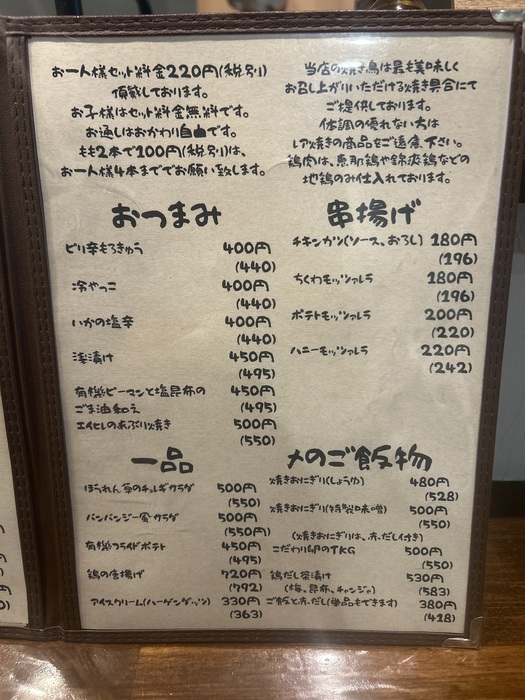 お一人様セット料金220円(税別)
頂戴しております。
お子様はセット料金無料です。
お通しはおかわり自由です。
もも2本で100円(税別)は、
お一人様4本まででお願い致します。
当店の焼き鳥は最も美味しく
お召し上がりいただける焼き具合にて
ご提供しております。
体調の優れない方は
レア焼きの商品をご遠慮下さい。
鶏肉は、恵那鶏や錦爽鶏などの
地鶏のみ仕入れております。
おつまみ
ピリ辛もろきゅう 400円
(440)
冷やっこ 400円
(440)
いかの塩辛 400円
(440)
浅漬け 450円
(495)
有機ピーマンと塩昆布の 450円
ごま油和え (495)
エイヒレのあぶり焼き 500円
(550)
串揚げ
チキンカツ(ソース、おろし) 180円
(196)
ちくわモッツァレラ 180円
(196)
ポテトモッツァレラ 200円
(220)
ハニーモッツァレラ 220円
(242)
一品
ほうれん草のチョレギサラダ 500円
(550)
バンバンジー風サラダ 500円
(550)
有機フライドポテト 450円
(495)
鶏の唐揚げ 720円
(792)
アイスクリーム(ハーゲンダッツ) 330円
(363)
〆のご飯物
焼きおにぎり(しょうゆ) 480円
(528)
焼きおにぎり(特製味噌) 500円
(550)
(焼きおにぎりは、赤だし付き)
こだわり卵のTKG 500円
(550)
鶏だし茶漬け 530円
(梅、昆布、チャンジャ) (583)
ご飯と赤だし(単品もできます) 380円
(418)